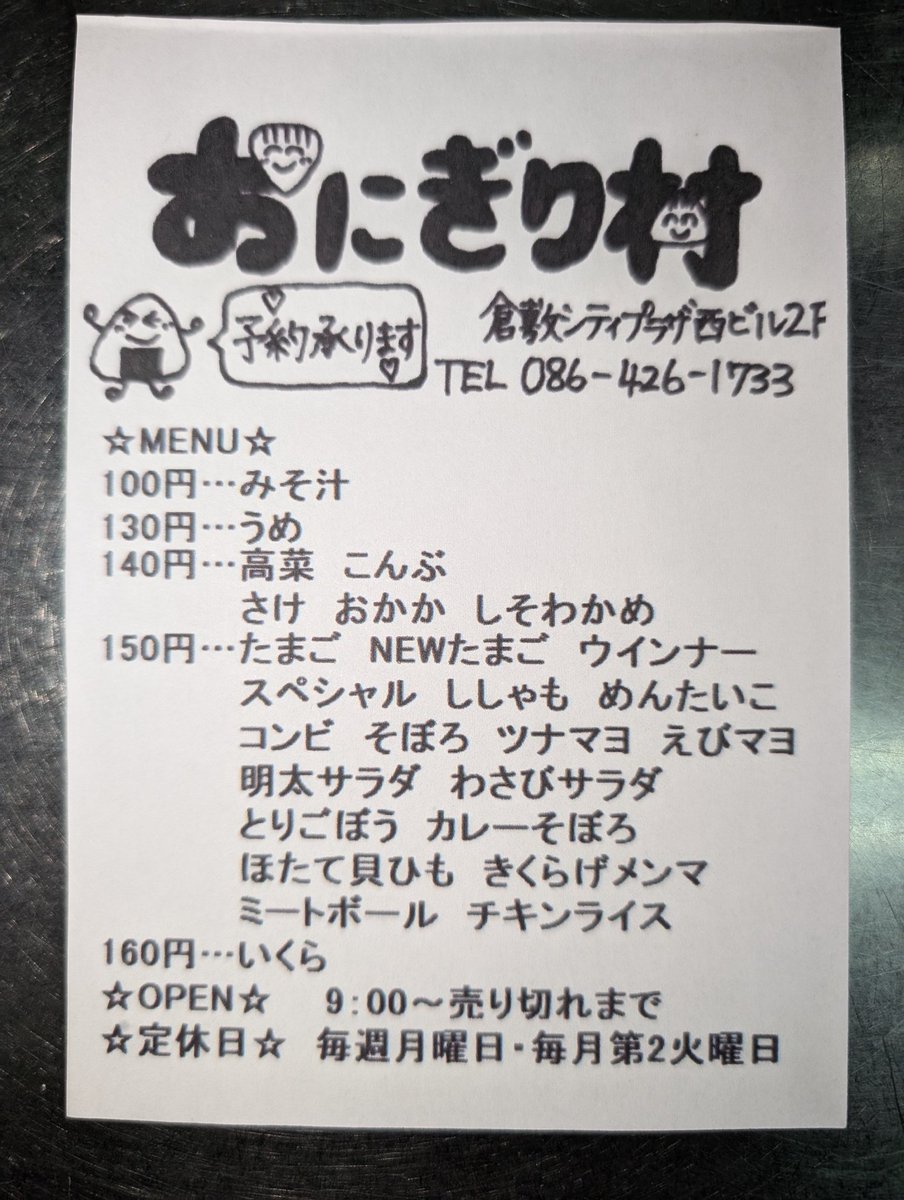 おにぎり村
予約承ります
倉敷シティプラザ西ビル2F
TEL 086-426-1733
☆MENU☆
100円…みそ汁
130円…うめ
140円…高菜 こんぶ
さけ おかか しそわかめ
150円…たまご NEWたまご ウインナー
スペシャル ししゃも めんたいこ
コンビ そぼろ ツナマヨ えびマヨ
明太サラダ わさびサラダ
とりごぼう カレーそぼろ
ほたて貝ひも きくらげメンマ
ミートボール チキンライス
160円…いくら
☆OPEN☆ 9:00～売り切れまで
☆定休日☆ 毎週月曜日・毎月第2火曜日